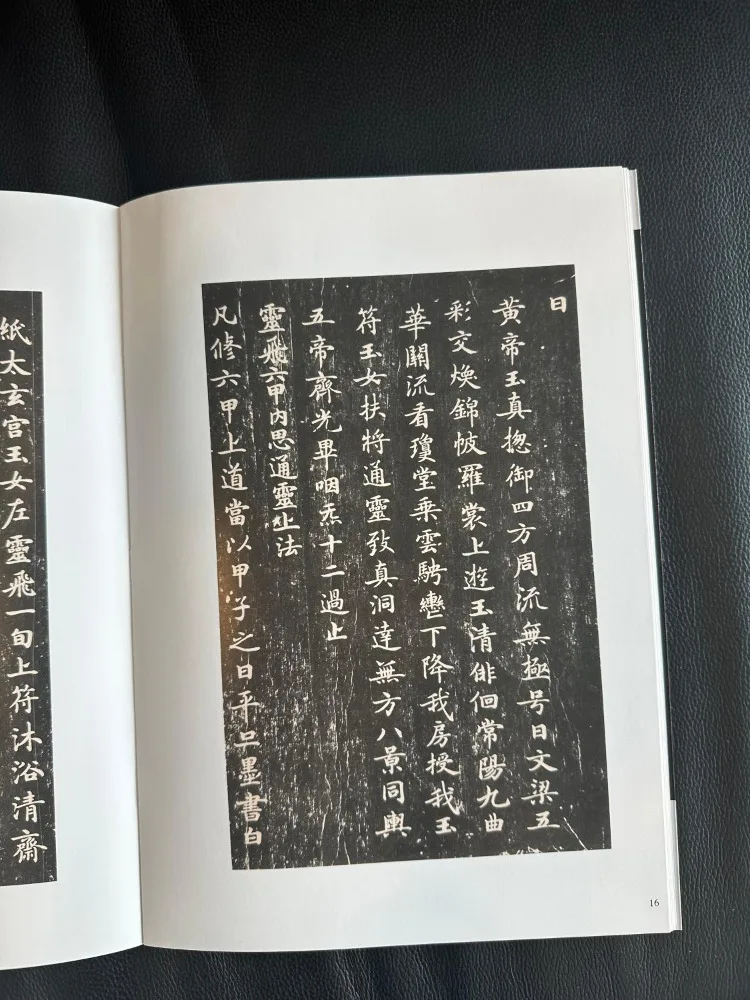 曰
黃帝玉真揔御四方周流無極号曰文梁五
彩交煥錦帔羅裳上遊玉清俳佪常陽九曲
華關流看瓊堂乗雲騁轡下降我房授我玉
符玉女扶將通靈致真洞達無方八景同輿
五帝齊光畢咽炁十二過止
靈飛六甲内思通靈上法
凡修六甲上道當以甲子之日平旦墨書白
紙太玄宫玉女左靈飛一旬上符沐浴清齋
16